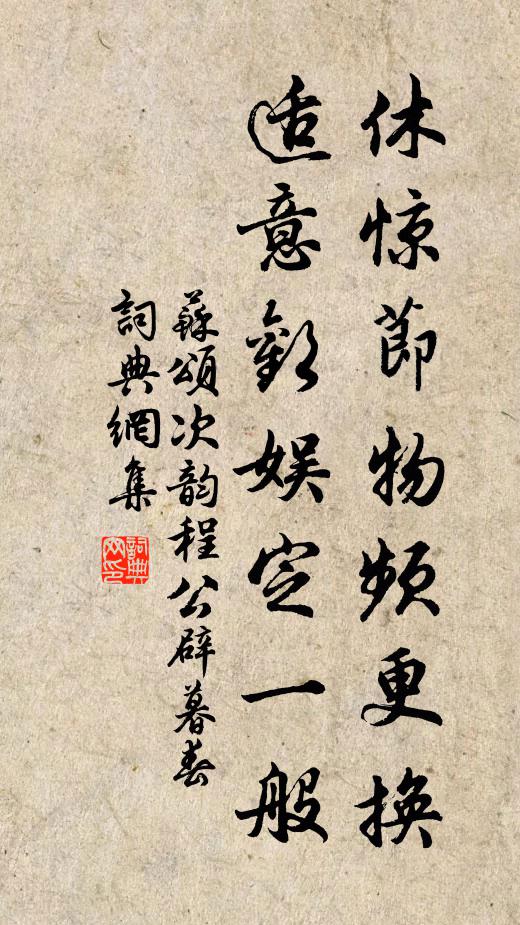 休惊節物頻更換
适意歡娛定一般
蘇頌次韵程公辟暮春
詞典網集
詞典网印